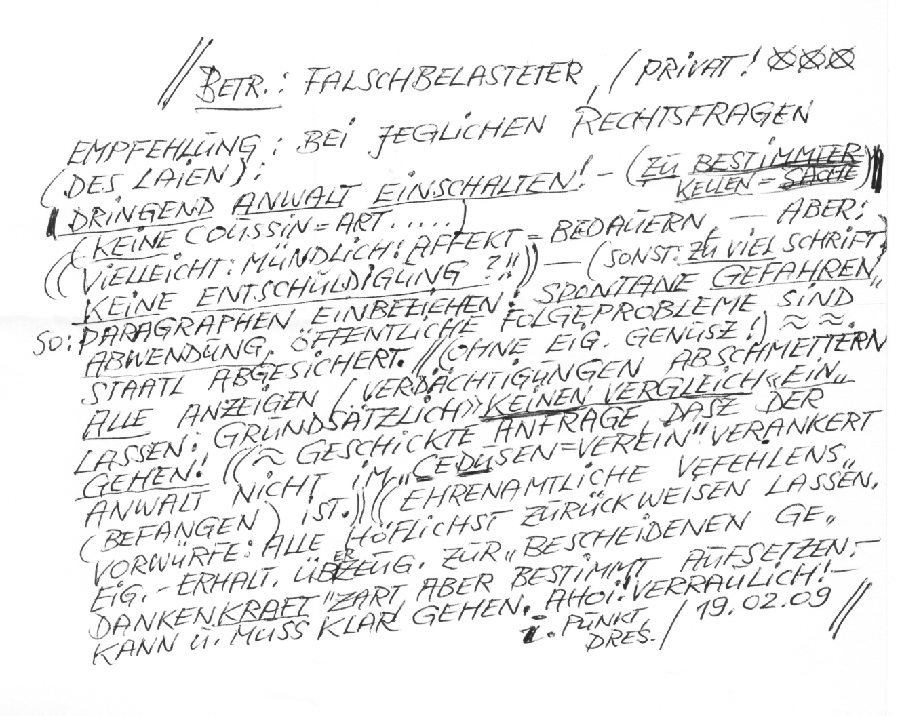 // BETR.: FALSCHBELASTETER, / PRIVAT!
EMPFEHLUNG: BEI JEGLICHEN RECHTSFRAGEN
(DES LAIEN):
DRINGEND ANWALT EINSCHALTEN! – (ZU BESTIMMTER
KELLEN = SACHE)
(KEINE COUSSIN = ART .....)
((VIELLEICHT: MÜNDLICH: AFFEKT = BEDAUERN, – ABER:
KEINE ENTSCHULDIGUNG ?!")) – (SONST: ZU VIEL SCHRIFT)
SO: PARAGRAPHEN EINBEZIEHEN: SPONTANE GEFAHREN„
ABWENDUNG, ÖFFENTLICHE FOLGEPROBLEME SIND
STAATL ABGESICHERT. //(OHNE EIG. GENUSZ!) ≈ ≈
ALLE ANZEIGEN / VERDÄCHTIGUNGEN ABSCHMETTERN
LASSEN: GRUNDSÄTZLICH» KEINEN VERGLEICH «EIN„
GEHEN! ((≈ GESCHICKTE ANFRAGE DASZ DER
ANWALT NICHT IM „CEDUSEN=VEREIN" VERANKERT
(BEFANGEN) IST.))( EHRENAMTLICHE VEFEHLENS„
VORWÜRFE: ALLE HÖFLICHST ZURÜCKWEISEN LASSEN.
EIG. – ERHALT. ÜBERZEUG. ZUR „BESCHEIDENEN GE„
DANKENKRAFT" ZART ABER BESTIMMT AUFSETZEN: –
KANN U. MUSS KLAR GEHEN. AHOI! VERRAULICH! –
i. PUNKT, / 19.02.09 //
DRES.